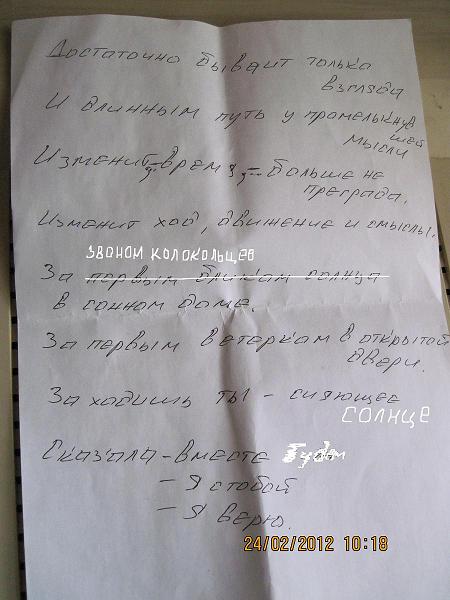 Достаточно бывает только
взгляда
И длинным путь у промелькнув
шей
мысли
Изменит время, – больше не
преграда.
Изменит ход, движение и смыслы.
звоном колокольцев
За первым бликом солнца
в сонном доме.
За первым ветерком в открытой
двери.
Заходишь ты – сияющее
солнце
Сказала – вместе будем
– Я с тобой
– Я верю.
24/02/2012 10:18